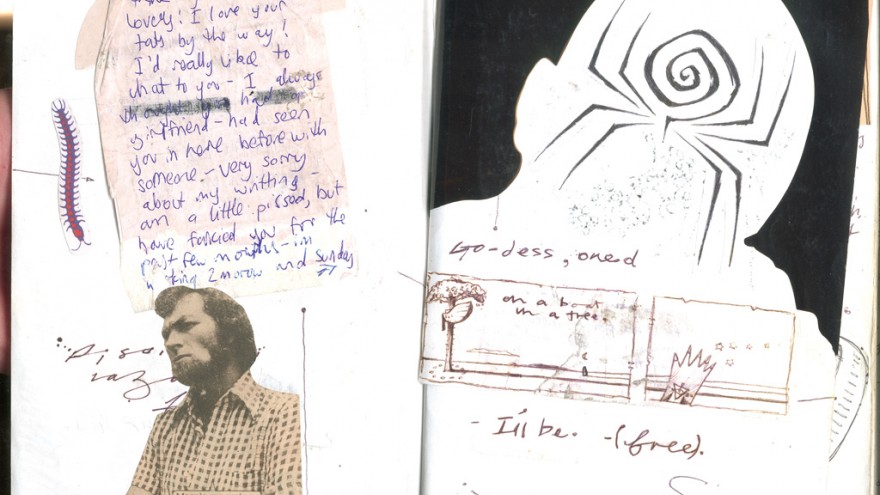 lovely! I love your
tats by the way!
I'd really like to
chat to you – I always
thought you had a
girlfriend – had seen
you in here before with
someone – very sorry
about my writting –
am a little pissed, but
have fancied you for the
past few months – im
king 2morow and Sunday
Go-dess, oned
on a boat
in a tree.
- I'll be. -(free).